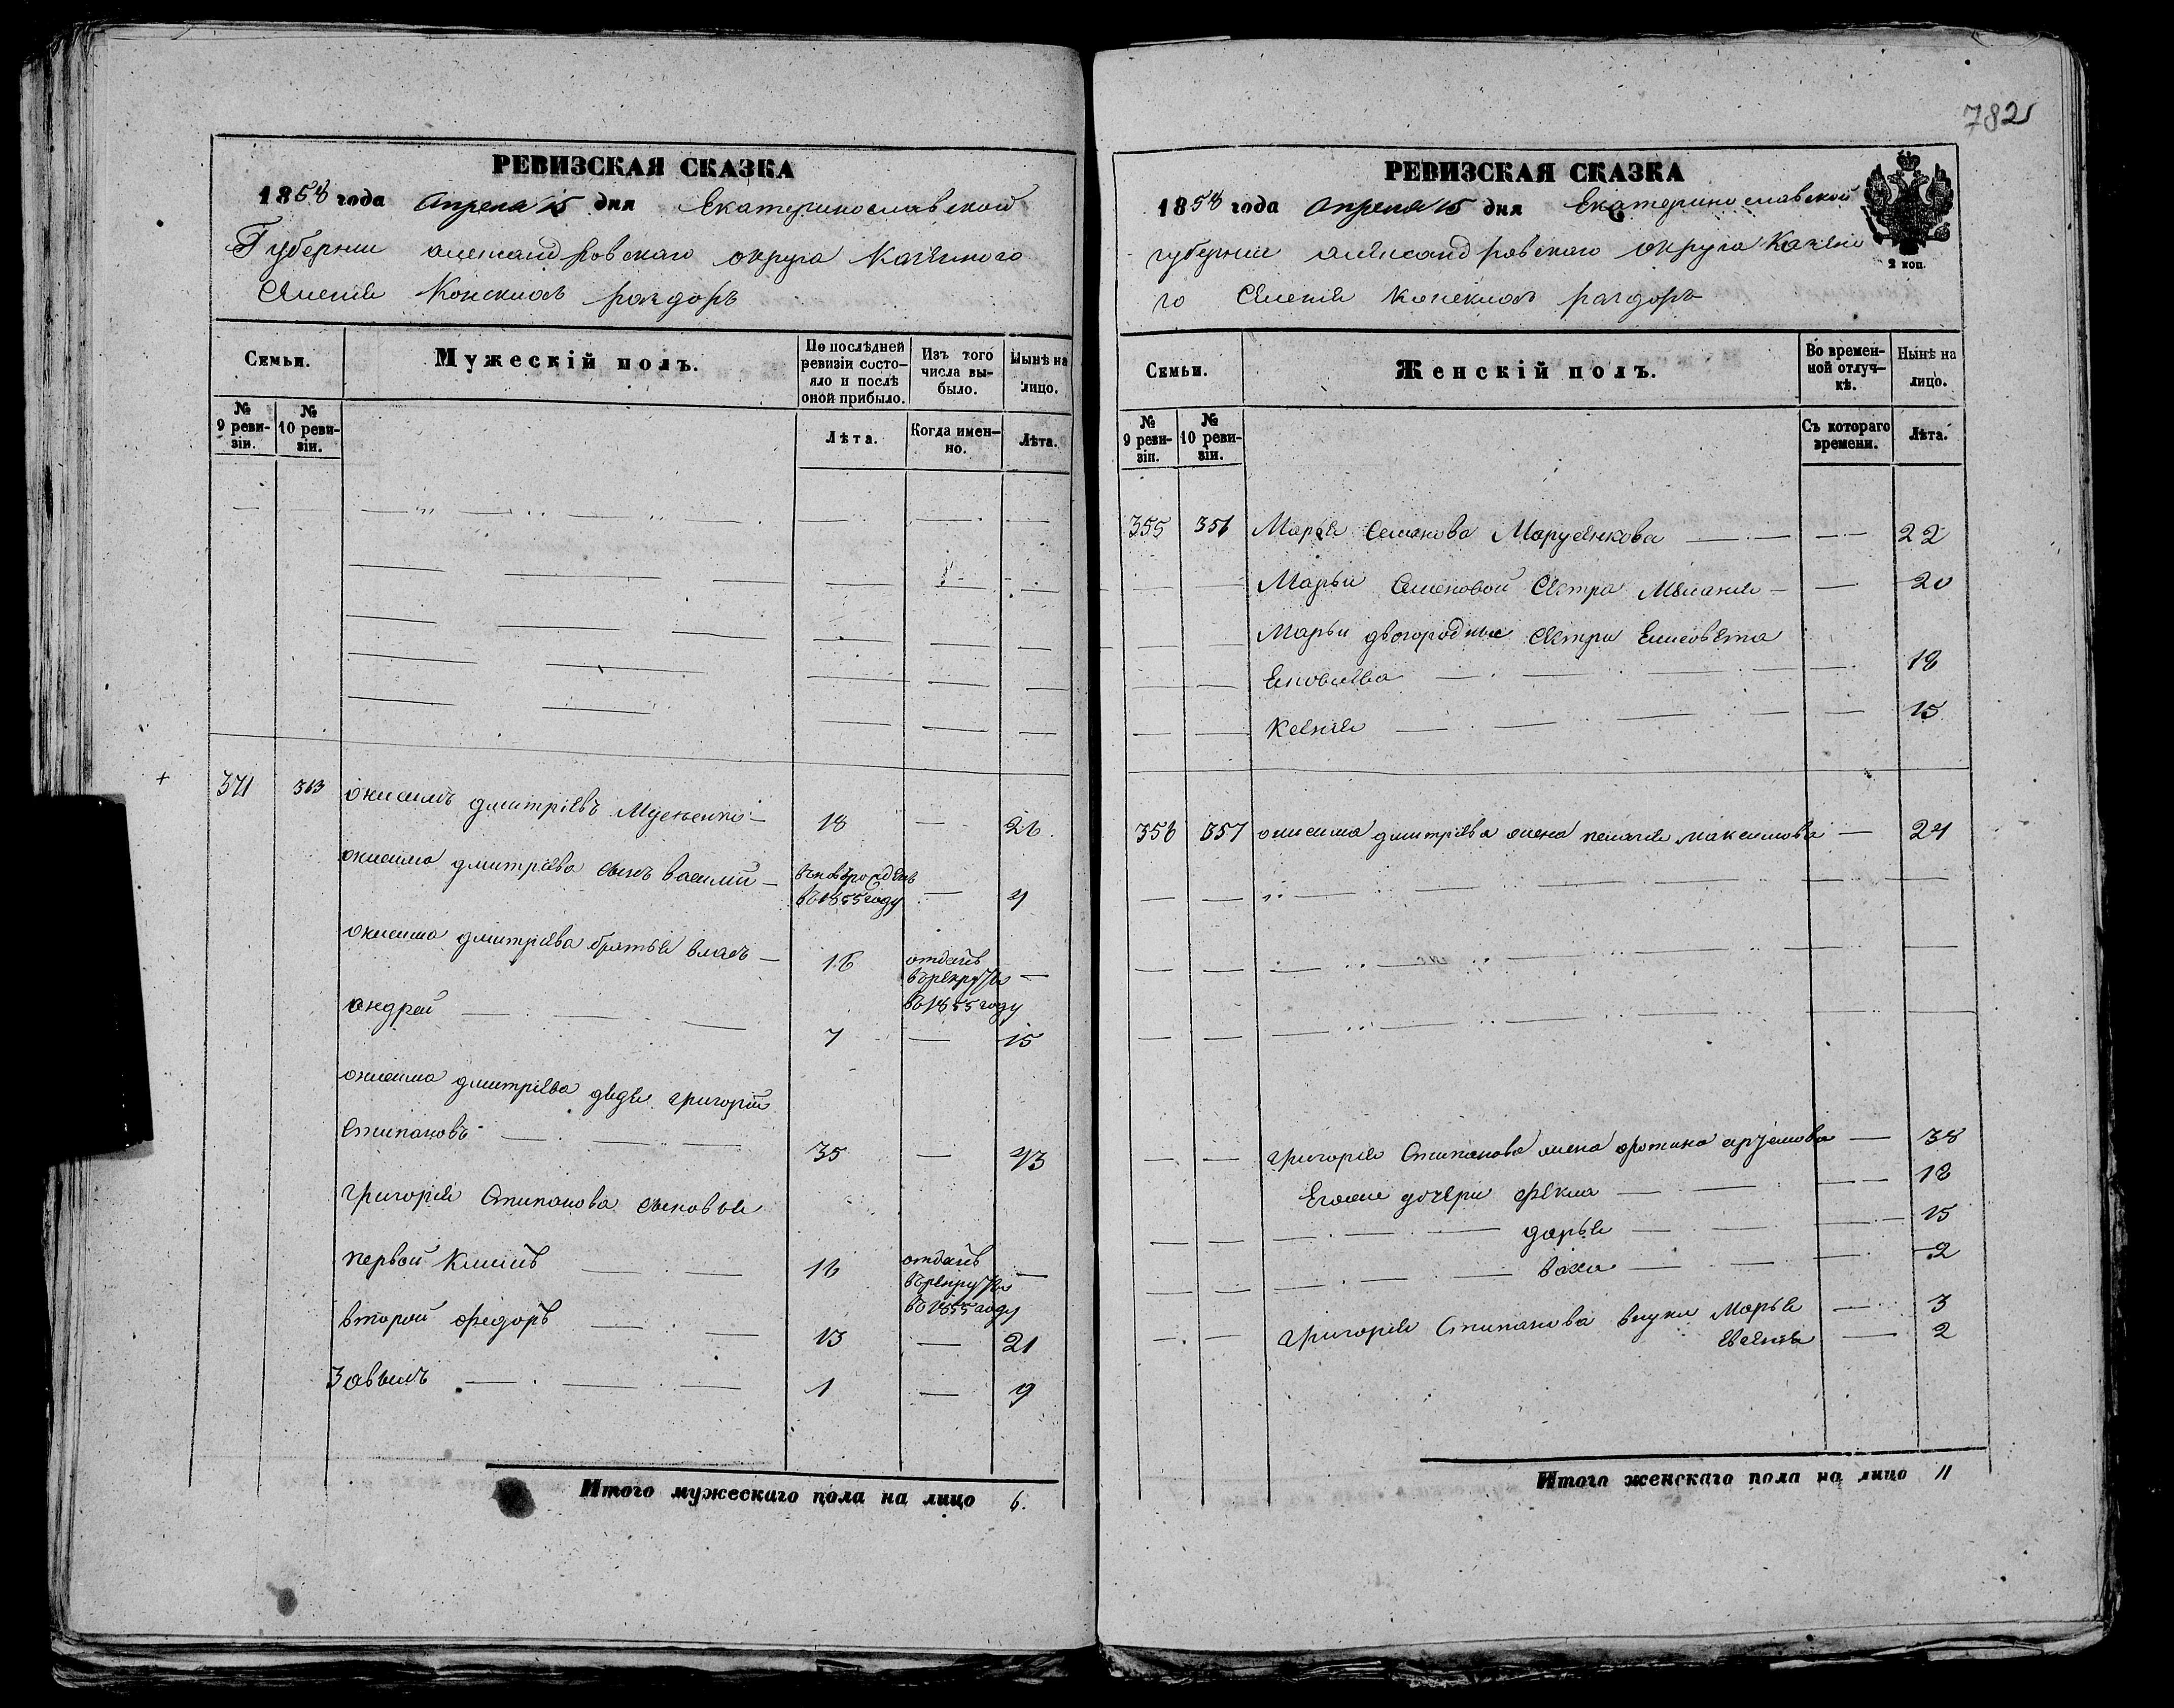 782
РЕВИЗСКАЯ СКАЗКА
1858 года Апреля 15 дня Екатеринославской
Губернии александровскаго округа Казенного
Селения Конских раздоръ
Семьи.
Мужескій полъ.
По послѣдней ревизіи состояло и послѣ оной прибыло.
Изъ того числа выбыло.
Нынѣ на лицо.
№ 9 ревизіи.
№ 10 ревизіи.
Лѣта.
Когда именно.
Лѣта.
371 363 онисимъ дмитріевъ 18 — 26
онисима дмитріева сынъ василий — вновърожденъ въ1855году — 4
онисима дмитріева братья власъ — 16 отданъ върекруты въ1855году —
андрей — 7 — 15
онисима дмитріева дядя григорій
Стипановъ — 35 — 43
григорія Стипанова сыновья
первой Климъ — 16 отданъ върекруты въ1855году —
второй федоръ — 13 — 21
3 авымъ — 1 — 9
Итого мужескаго пола на лицо 6.
РЕВИЗСКАЯ СКАЗКА
1858 года Апреля 15 дня Екатеринославской
губернии александровскаго округа Казено
го Селения конских раздоръ
2 коп.
Семьи.
Женскій полъ.
Во временной отлучкѣ.
Нынѣ на лицо.
№ 9 ревизіи.
№ 10 ревизіи.
Съ котораго времени.
Лѣта.
355 356 Марья Семенова Марусенкова — 22
Марьи Семеновой Сестра Мелания — 20
Марьи двогородные Сестри Елисовета
Яковлева — 18
Ксения — 15
356 357 онисима дмитріева жена пелагея максимова — 24
григория Стипанова жена фротина артемова — 38
Егоже дочери фекла — 18
дарья — 15
васса — 2
григория Стипанова внуки Марья — 3
Евгения — 2
Итого женскаго пола на лицо 11